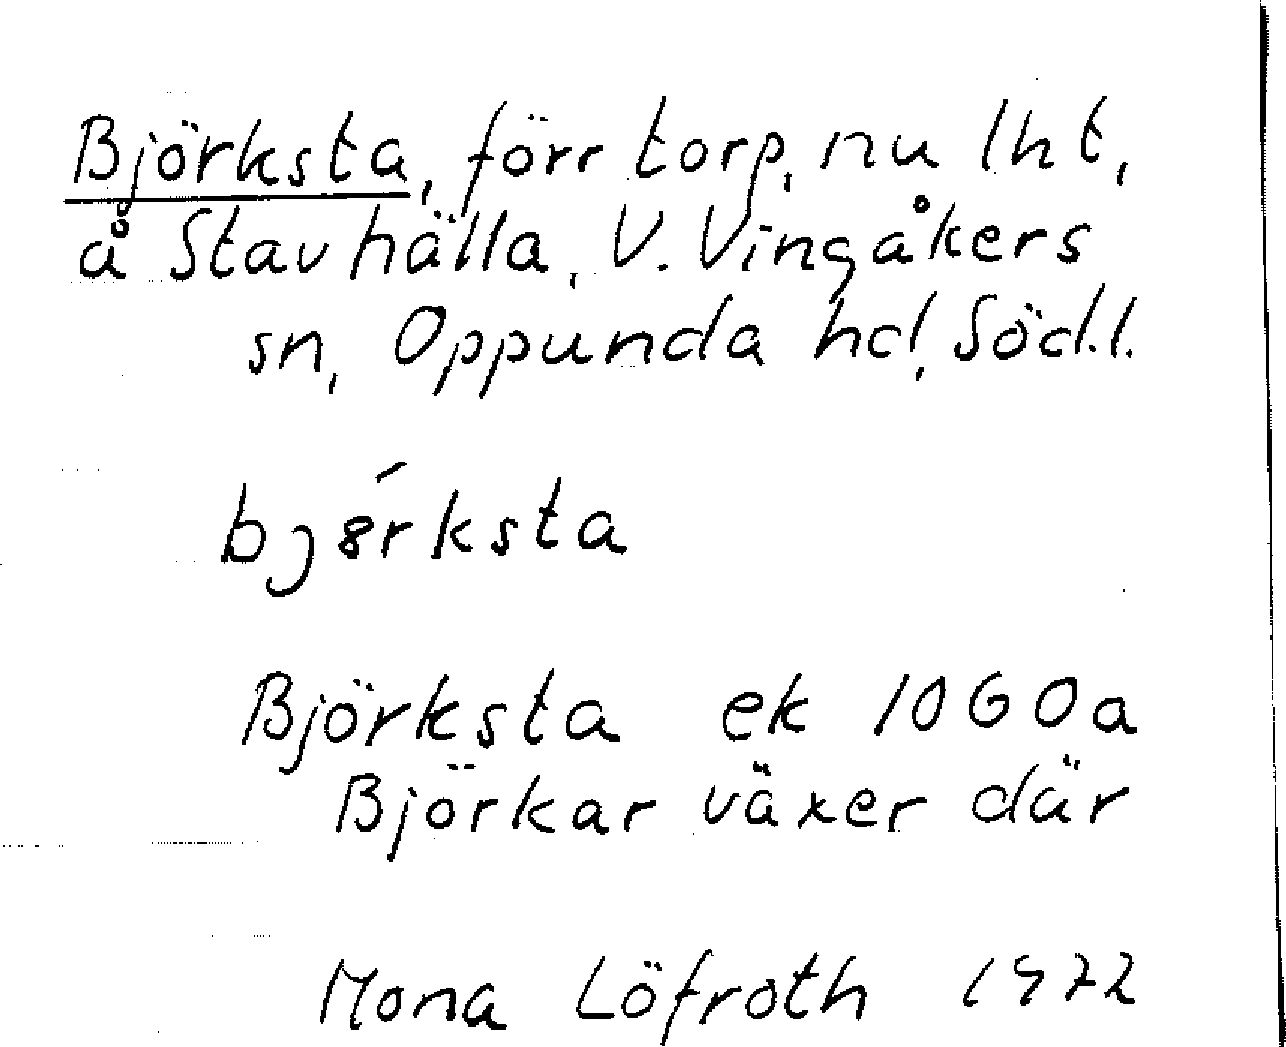 Björksta, förr torp, nu lht,
å Stavhälla, V. Vingåkers
sn, Oppunda hd, Söd.l.
bjǿrksta
Björksta ek 10G0a
Björkar växer där
Mona Löfroth 1972